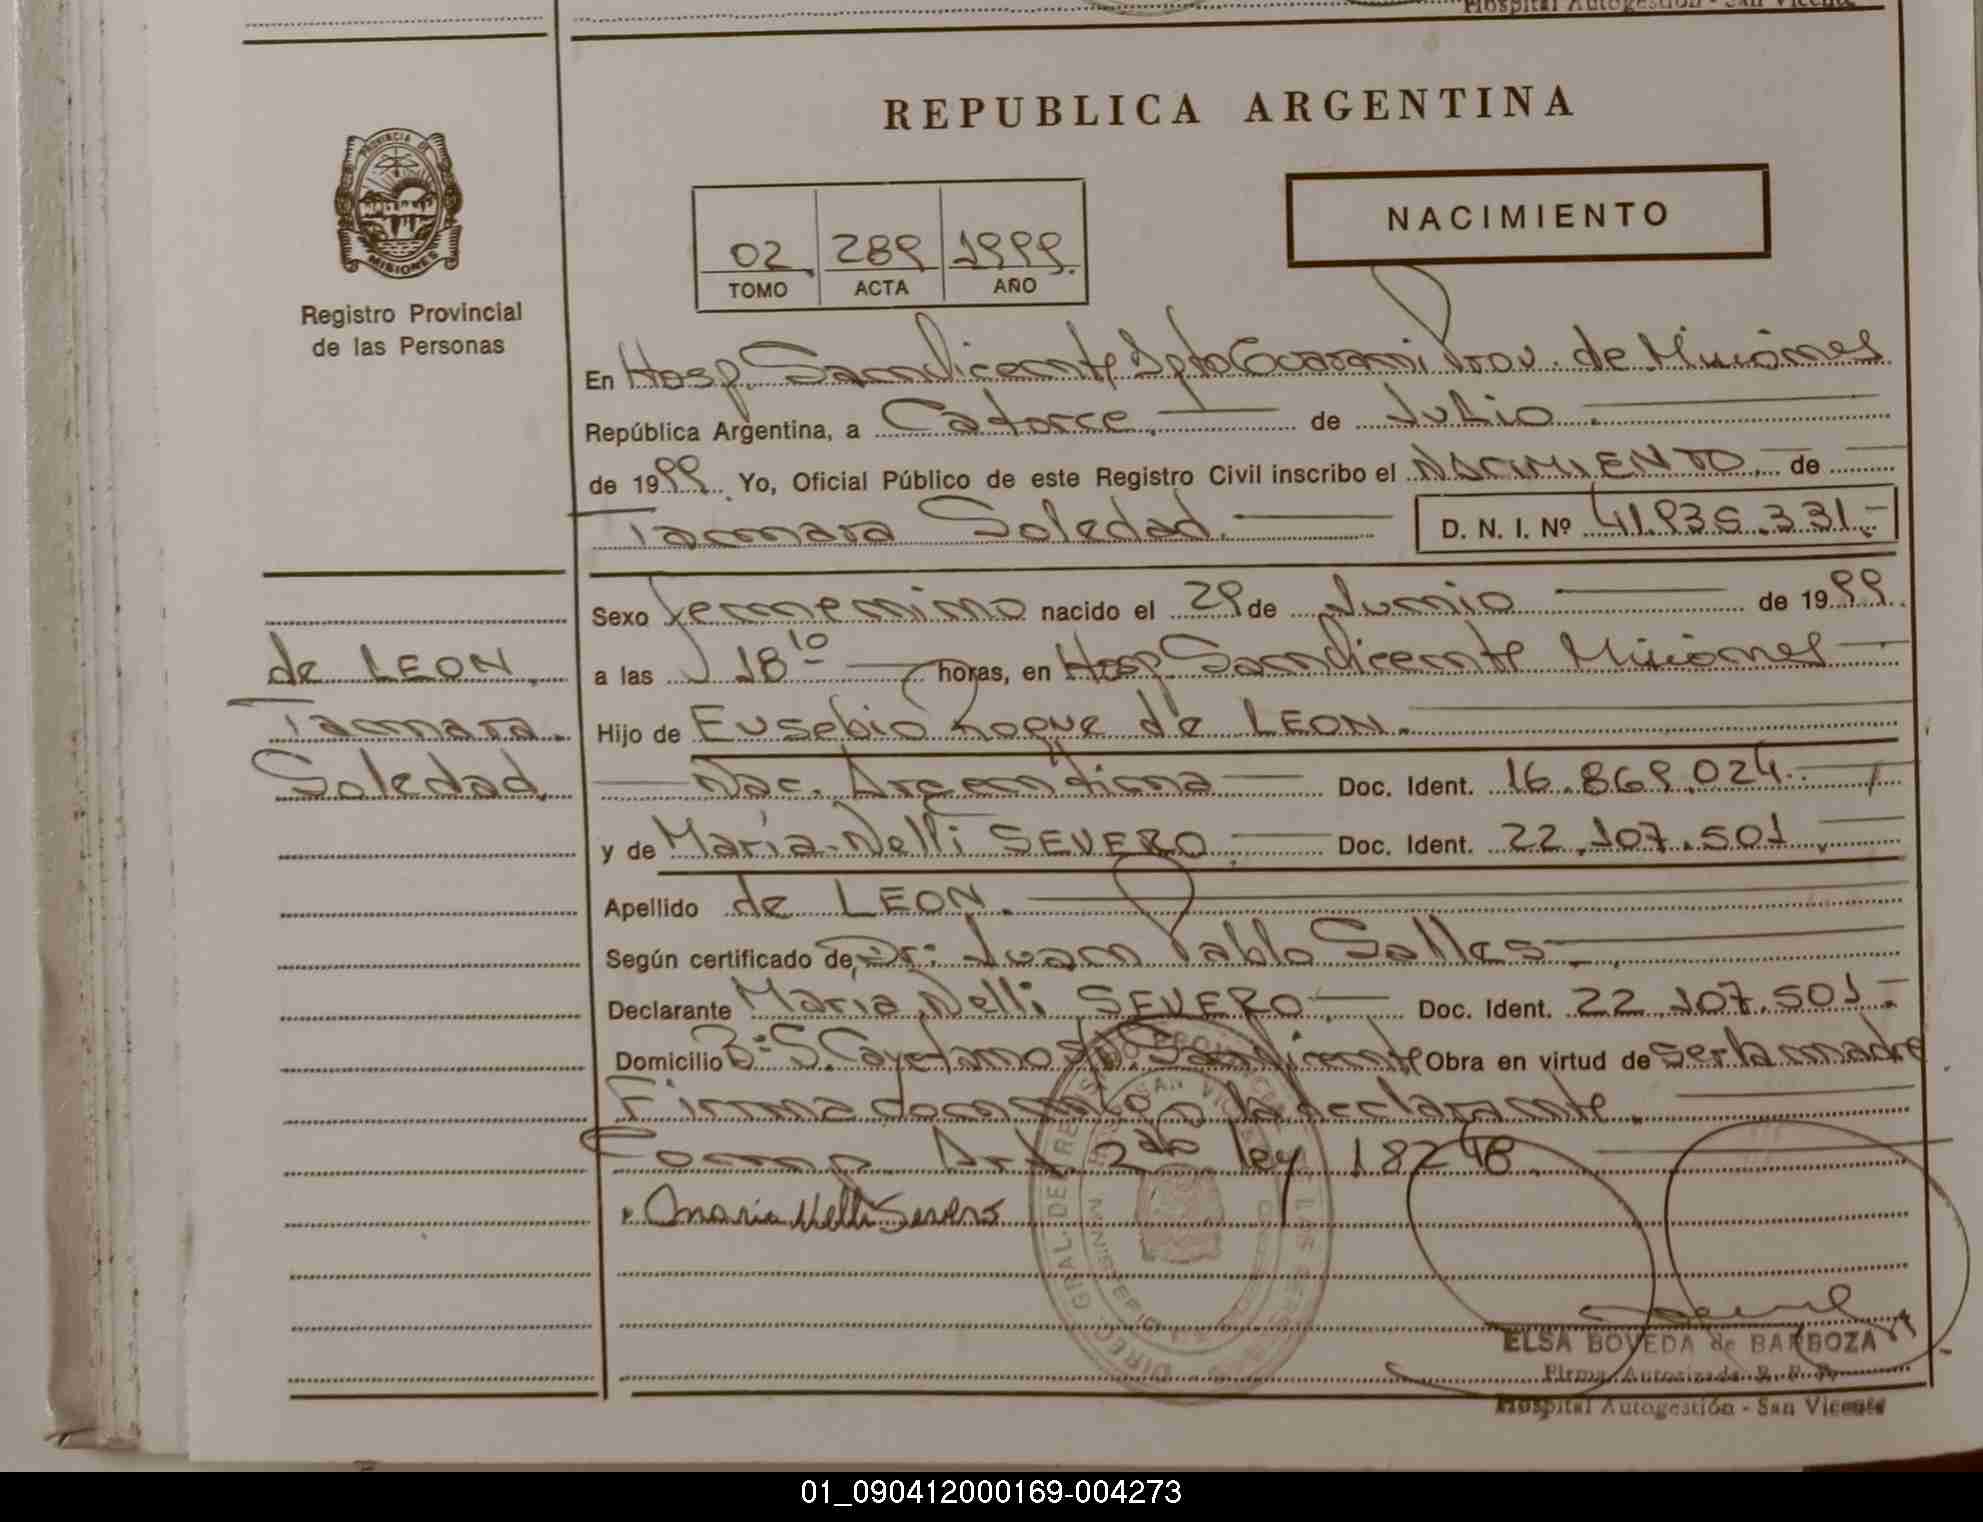 Hospital Autogestión - San Vicente
REPUBLICA ARGENTINA
PROVINCIA DE
MISIONES
Registro Provincial
de las Personas
02 289 1999
TOMO ACTA AÑO
NACIMIENTO
En Hosp. San Vicente Dpto Guarani Prov. de Misiones
República Argentina, a Catorce. de Julio
de 1999. Yo, Oficial Público de este Registro Civil inscribo el NACIMIENTO de
Tamara Soledad. D. N. I. Nº 41.936.331.-
de LEON.
Tamara.
Soledad.
Sexo Femenino nacido el 29 de Junio de 1999.
a las 18 10 horas, en Hosp. San Vicente Misiones
Hijo de Eusebio Roque de LEON.
Nac. Argentina Doc. Ident. 16.869.024.
y de María Nelli SEVERO. Doc. Ident. 22.107.501.
Apellido de LEON.
Según certificado de, Dr: Juan Pablo Salles.
Declarante María Nelli SEVERO. Doc. Ident. 22.107.501.-
Domicilio Bº S. Cayetano San Vicente Obra en virtud de ser la madre
Firma la declarante.
Comp. Art. 2do ley 18248.
Maria Nelli Severo
ELSA BOVEDA de BARBOZA
Firma Autorizada R. P. P.
Hospital Autogestión - San Vicente
01_090412000169-004273